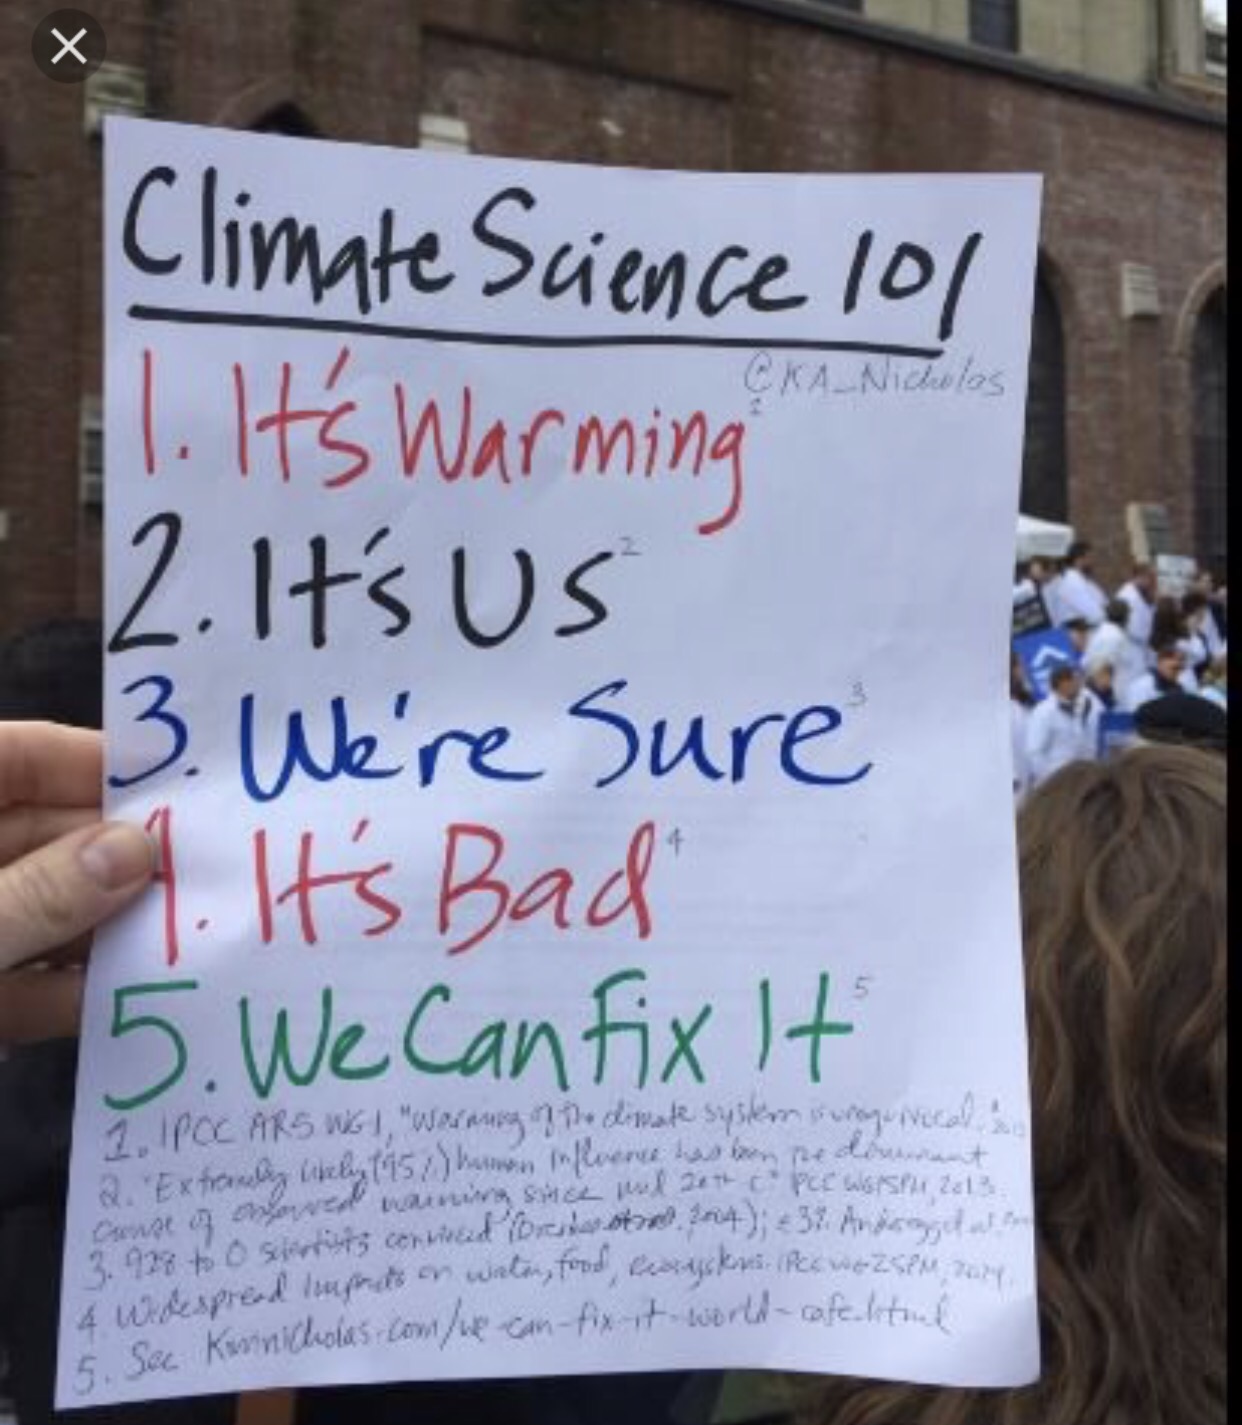 Climate Science 101
@KA_Nicholas
1. It's Warming
2. It's Us 2
3. We're Sure 3
4. It's Bad 4
5. We Can Fix It 5
1. IPCC AR5 WG1, "Warming of the climate system is unequivocal,"
2. "Extremely likely (95%) human influence has been predominant
cause of observed warming since mid 20th C" 2013
3. 928 to 0 scientists convinced 2004);
4 Widespread impacts on water, food, ecosystems. IPCC WG2SPM, 2014.
5. See Kimnicholas.com/we-can-fix-it-world-cafe.html